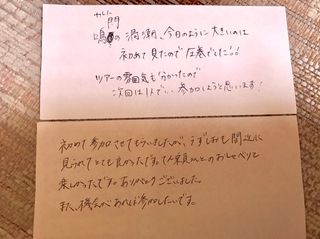 鳴門の渦潮、今日のように大きいのは
初めて見たので圧巻でした!!
ツアーの雰囲気も分かったので
次回は1人で 参加しようと思います!
初めて参加させてもらいましたが、うずしおも間近に
見られてとても良かったです。
とのおしゃべりも
楽しかったです。ありがとうございました。
また、機会があれば参加したいです。